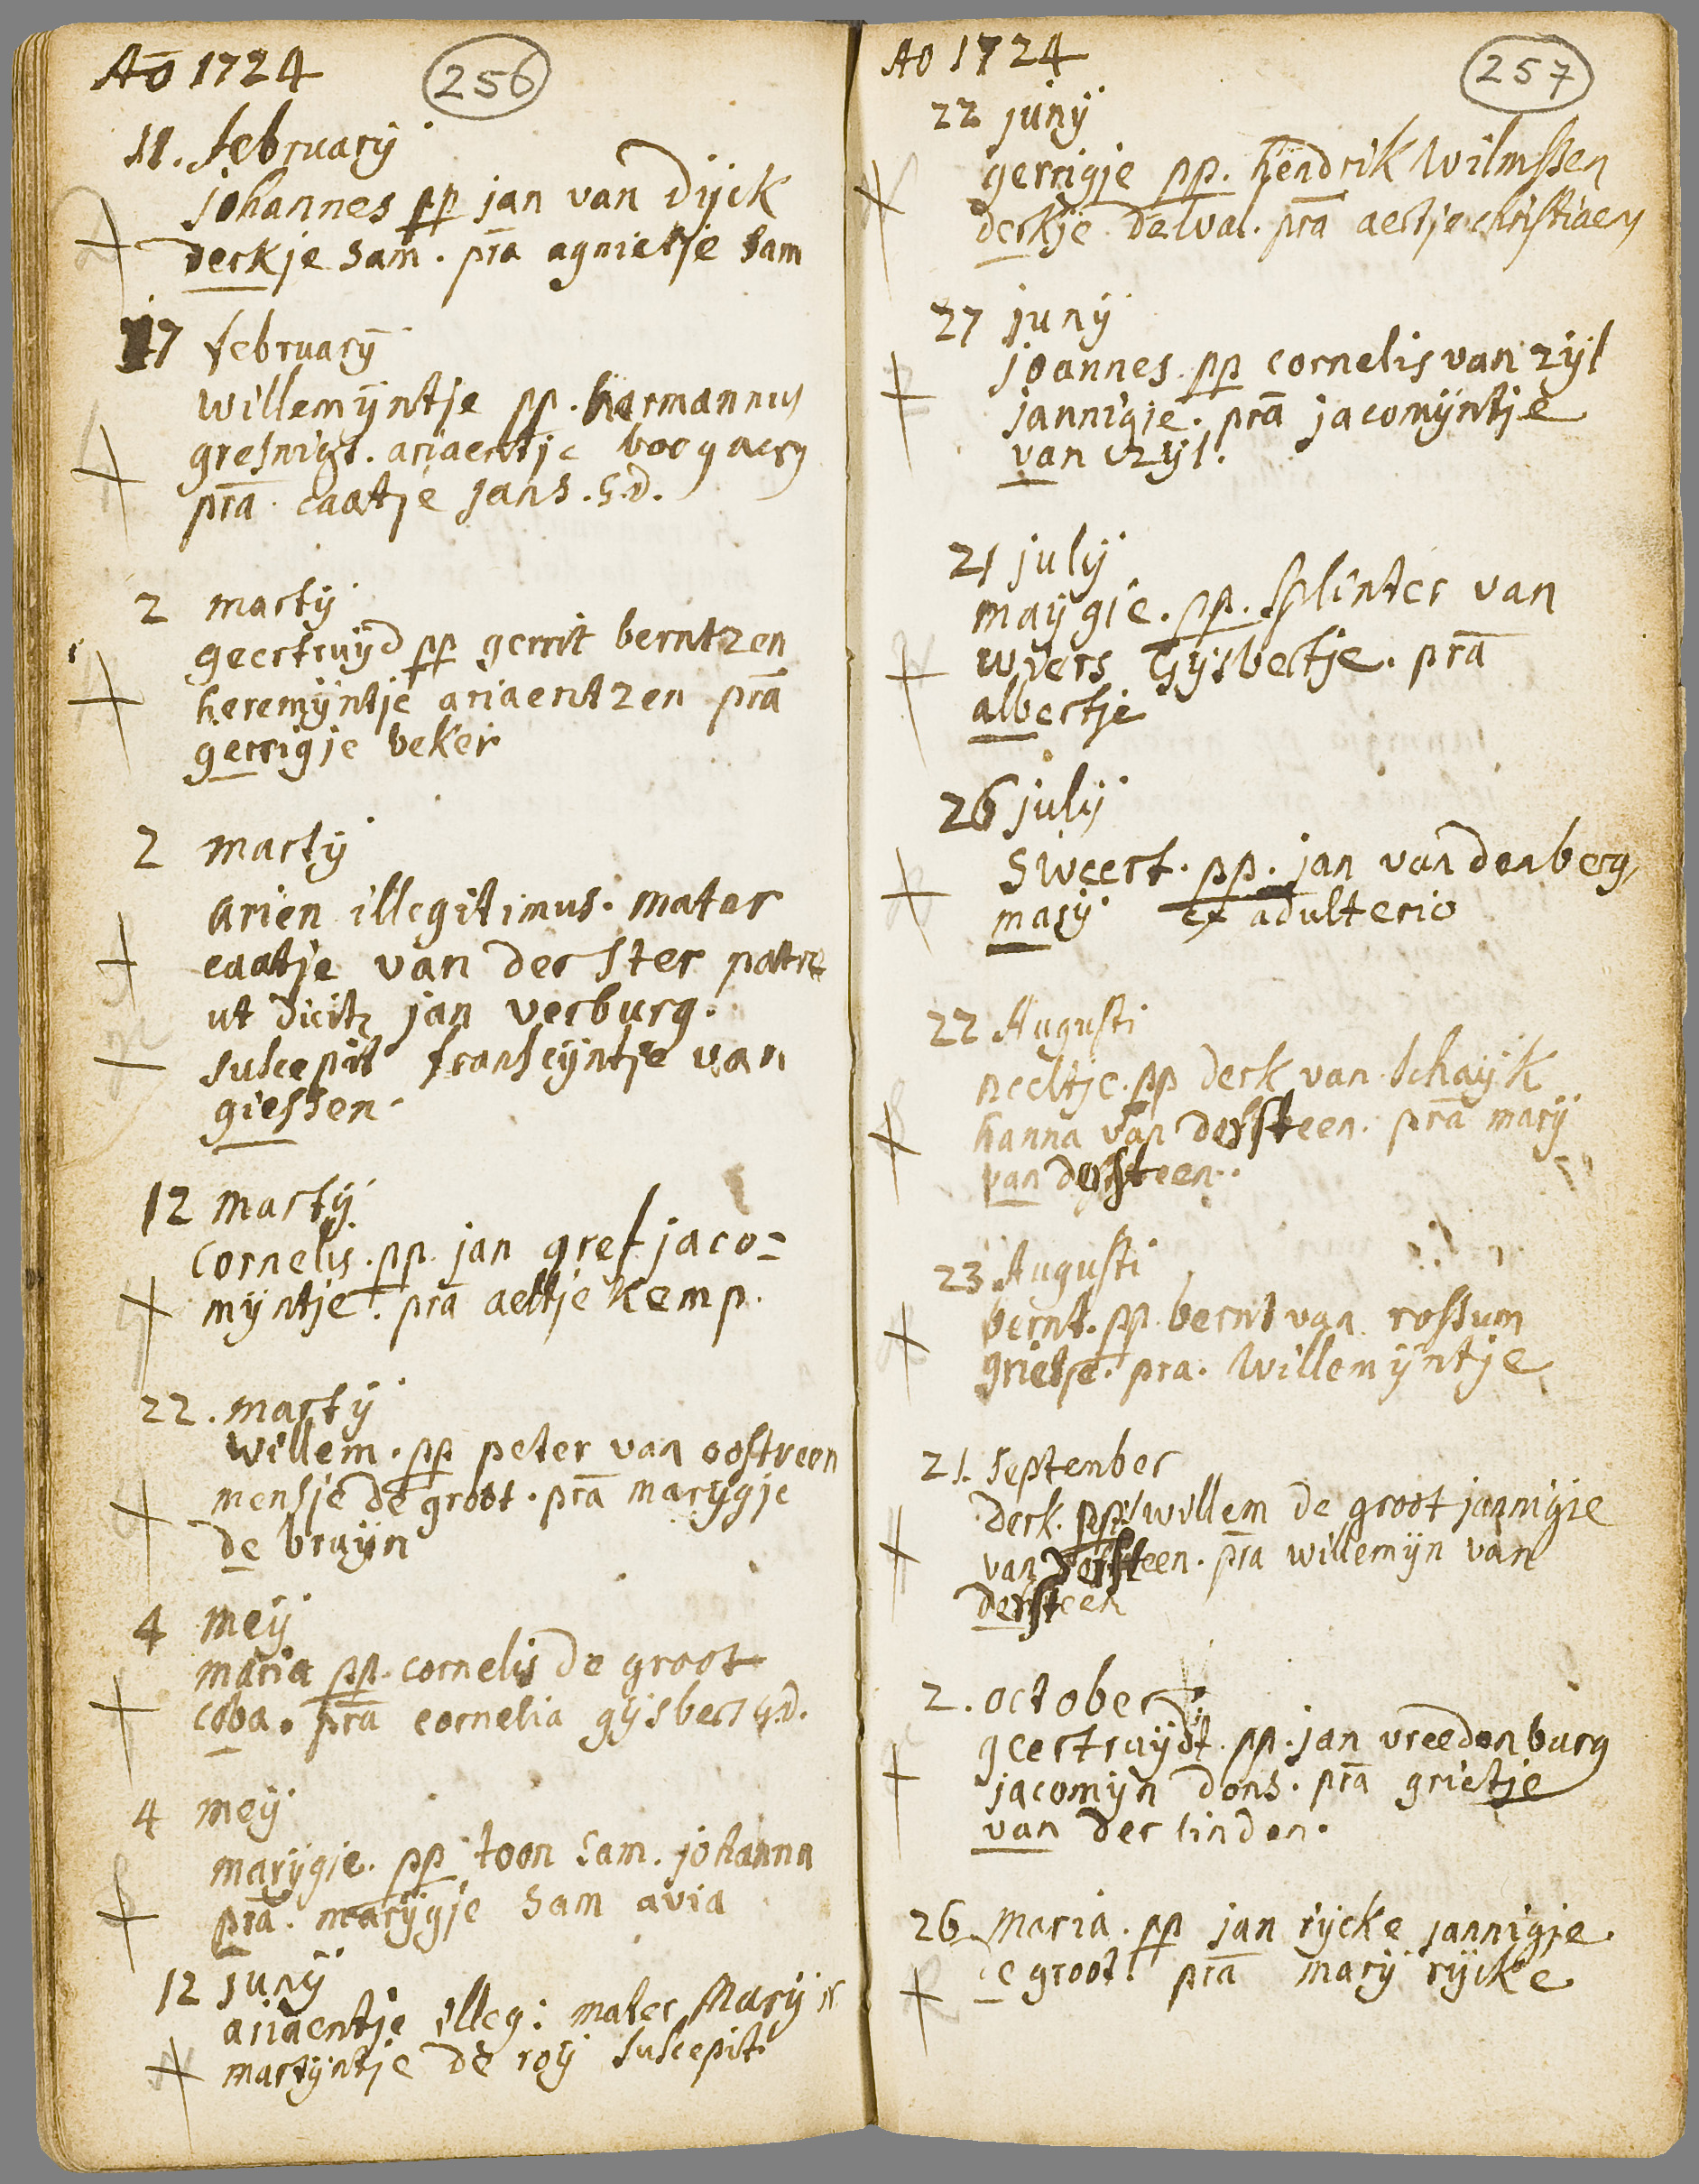 Aō 1724
256
11. february
johannes pp jan van Dijck
derkje sam. pra agnietje sam
17 february
willemijntje pp. harmannus
gresnigt. ariaentje boogaers
pra caatje jans. s.d.
2 martij
geertruijd pp gerrit berntzen
heremijntje ariaentzen pra
gerrigje beker
2 martij
arien illegitimus. mater
caatje van der ster patre
ut dicitr jan verburg.
suscepit franscijntje van
giessen.
12 martij
Cornelis. pp. jan gref jaco=
mijntje. pra aeltje kemp.
22. martij
willem. pp peter van oostveen
mensje de groot. pra marijgje
de bruijn
4 meij
maria pp. cornelis de groot
coba. pra cornelia gijsbers s.d.
4 meij
marijgje. pp toon sam. johanna
pra. marijgje sam avia
12 junij
ariaentje illeg: mater Marij
martijntje de roij suscepit
Ao 1724
257
22 junij
gerrigje pp. hendrik Wilmssen
derkje delval. pra aertje christiaens
27 junij
joannes. pp cornelis van zijl
jannigje. pra jacomijntje
van zijl.
21 julij
maijgie. pp. splinter van
wiers Gijsbertje. pra
albertje
26 julij
Sweert. pp. jan van den berg,
marij ex adulterio
22 Augusti
neeltje. pp derk van schaijk
hanna van dersteen. pra marij
van dersteen.
23 Augusti
bernt. pp. bernt van rossum
grietje. pra. Willemijntje
21. september
derk. pp. willem de groot jannigje
van dersteen. pra willemijn van
dersteen
2. october
geertruijdt. pp. jan vreedenburg
jacomijn dons. pra grietje
van der linden.
26. Maria. pp jan rijcke jannigje.
de groot. pra marij rijcke